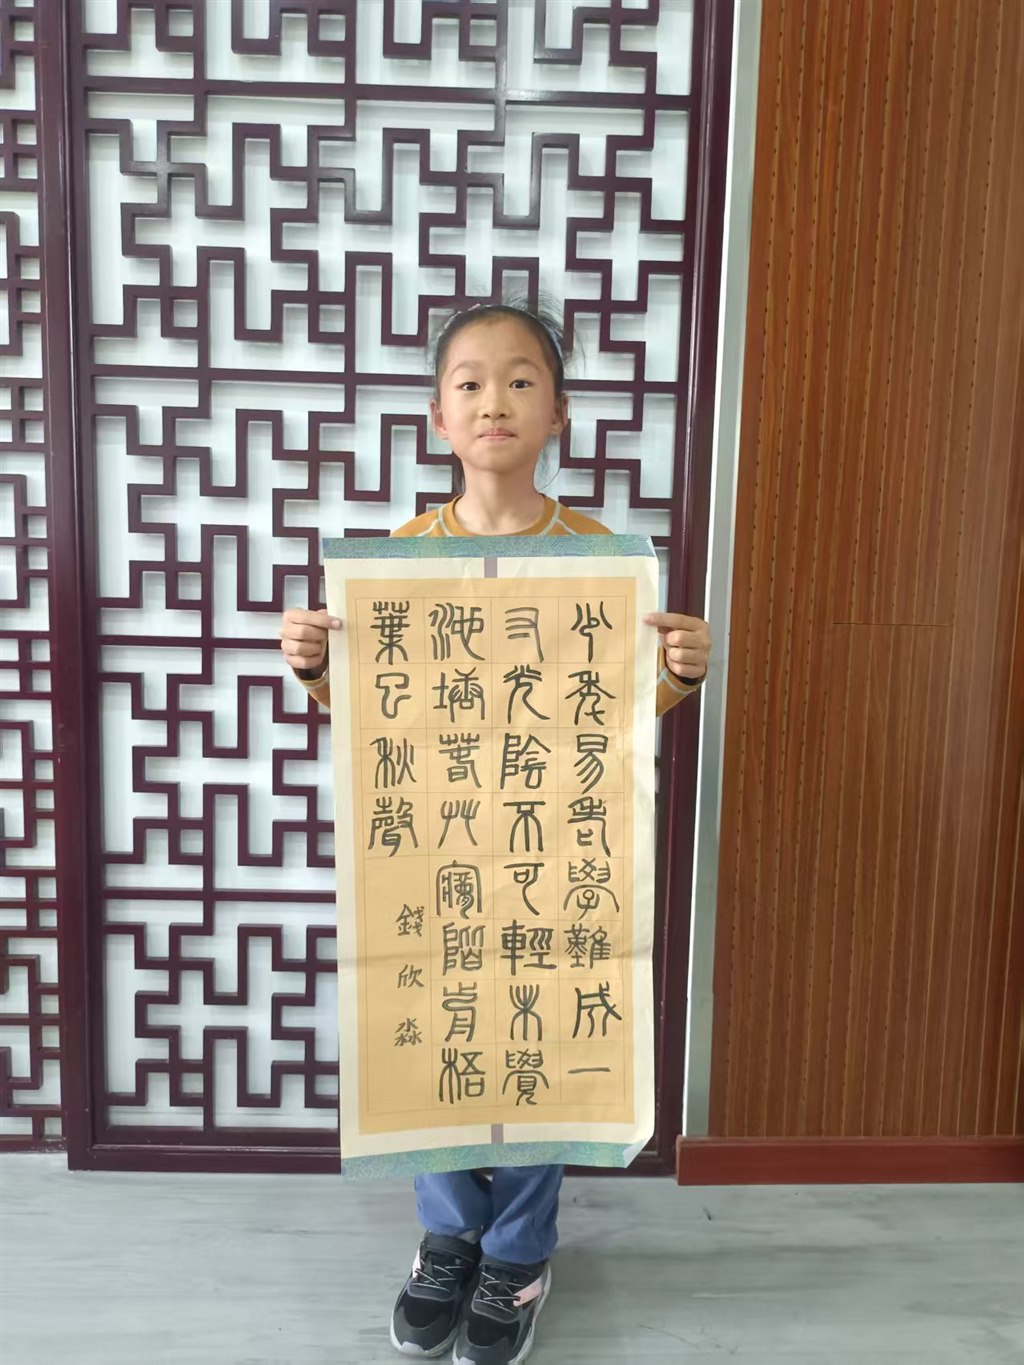 少年易老學難成一
寸光陰不可輕未覺
池塘春草夢階前梧
葉已秋聲
錢欣淼